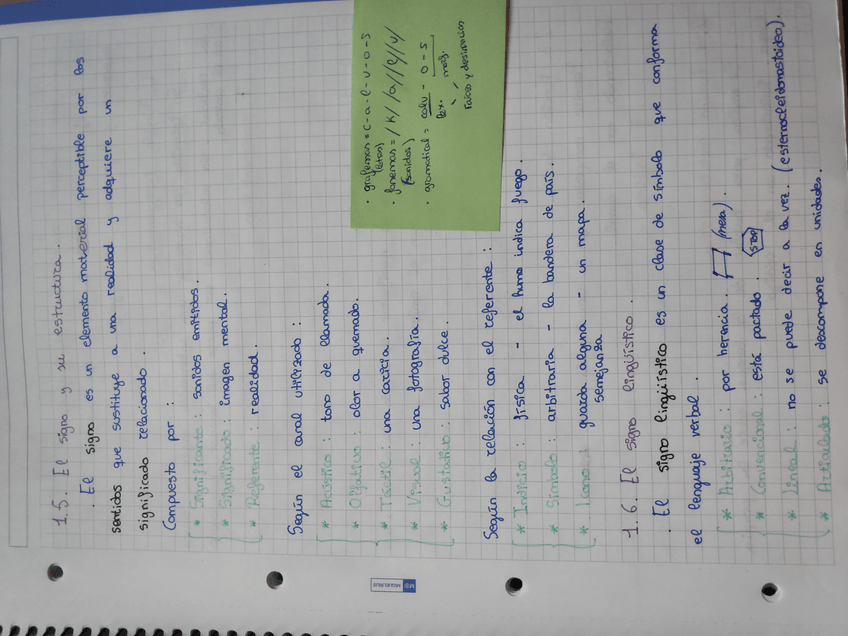 1.5. El signo y su estructura.
· El signo es un elemento material perceptible por los
sentidos que sustituye a una realidad y adquiere un
significado relacionado.
Compuesto por:
* Significante: sonidos emitidos.
* Significado: imagen mental.
* Referente: realidad.
Según el canal utilizado:
* Acústico: tono de llamada.
* Olfativo: olor a quemado.
* Táctil: una caricia.
* Visual: una fotografía.
* Gustativo: sabor dulce.
· grafemas = c-a-l-v-o-s
(letras)
· fonemas = /k/ /a/ /l/ /v/
(sonidos)
· gramatical = calv - o - s
lex. morf.
raíces y desinencias
Según la relación con el referente:
* Indicio: física - el humo indica fuego.
* Símbolo: arbitraria - la bandera de país.
* Icono: guarda alguna - un mapa.
semejanza
1.6. El signo lingüístico.
· El signo lingüístico es un clase de símbolo que conforma
el lenguaje verbal.
* Arbitrario: por herencia. (mesa).
* Convencional: está pactado. STOP
* Lineal: no se puede decir a la vez. (esternocleidomastoideo).
* Articulado: se descompone en unidades.
MIQUELRIUS